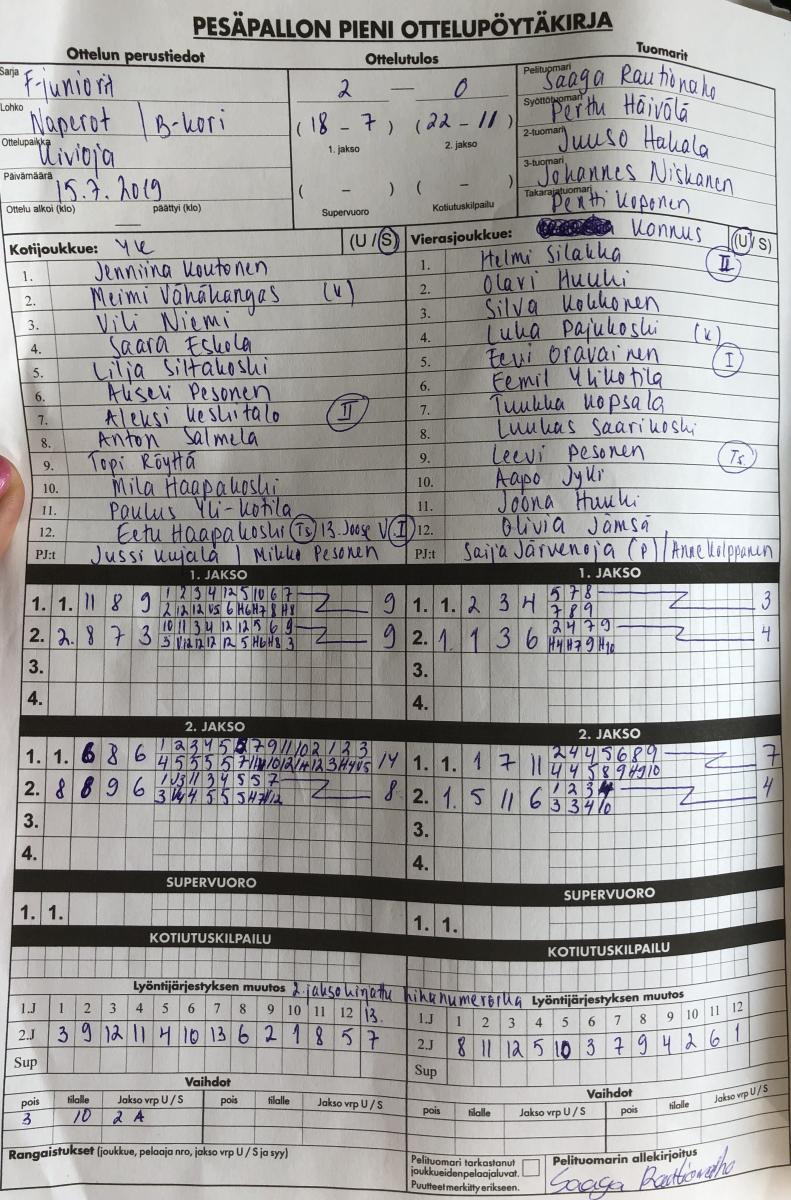 PESÄPALLON PIENI OTTELUPÖYTÄKIRJA
Ottelun perustiedot
Sarja F-juniorit
Lohko Naperot | B-kori
Ottelupaikka Kivioja
Päivämäärä 15.7.2019
Ottelu alkoi (klo) — päättyi (klo)
Ottelutulos
2 — 0
(18 - 7) (22 - 11)
1. jakso 2. jakso
( - ) ( - )
Supervuoro Kotiutuskilpailu
Tuomarit
Pelituomari Saaga Rautionaho
Syöttötuomari Perttu Häivälä
2-tuomari Juuso Hakala
3-tuomari Johannes Niskanen
Takarajatuomari Pentti Koponen
Kotijoukkue: YK (U / S)
1. Jenniina Koutonen
2. Meimi Vähäkangas (k)
3. Vili Niemi
4. Saara Eskola
5. Lilja Siltakoski
6. Akseli Pesonen
7. Aleksi Keskitalo II
8. Anton Salmela
9. Topi Röyttä
10. Mila Haapakoski
11. Paulus Yli-Kotila
12. Eetu Haapakoski Ts 13. Joose V I
PJ:t Jussi Kujala | Mikko Pesonen
Vierasjoukkue: Kannus (U / S)
1. Helmi Silakka II
2. Olavi Huuki
3. Silva Kokkonen
4. Luka Pajukoski (k)
5. Eevi Oravainen I
6. Eemil Ylikotila
7. Tuukka Kopsala
8. Luukas Saarikoski
9. Leevi Pesonen Ts.
10. Aapo Jyki
11. Joona Huuki
12. Olivia Jämsä
PJ:t Saija Järvenoja (P) | Anne Kolppanen
1. JAKSO
1. 1. 11 8 9 1 2 3 4 12 5 10 6 7 9
2 12 12 V5 6 H6 H7 8 H8
2. 2. 8 7 3 10 11 3 4 12 12 5 6 9 9
3 V12 12 12 12 5 H6 H8 3
3.
4.
1. JAKSO
1. 1. 2 3 4 5 7 8 3
7 8 9
2. 1. 1 3 6 2 4 7 9 4
H4 H7 9 H10
3.
4.
2. JAKSO
1. 1. 6 8 6 1 2 3 4 5 5 7 9 11 10 2 1 2 3 14
2. 8 8 9 6 8
3.
4.
2. JAKSO
1. 1. 1 7 11 2 4 4 5 6 8 9 7
4 4 5 8 9 H9 10
2. 1. 5 11 6 1 2 3 4 4
3 3 4 10
3.
4.
SUPERVUORO
1. 1.
SUPERVUORO
1. 1.
KOTIUTUSKILPAILU
KOTIUTUSKILPAILU
Lyöntijärjestyksen muutos 2. jakso kirjattu hihanumeroilla Lyöntijärjestyksen muutos
1.J 1 2 3 4 5 6 7 8 9 10 11 12 13.
2.J 3 9 12 11 4 10 13 6 2 1 8 5 7
Sup
1.J 1 2 3 4 5 6 7 8 9 10 11 12
2.J 8 11 12 5 10 3 7 9 4 2 6 1
Sup
Vaihdot
pois tilalle Jakso vrp U / S pois tilalle Jakso vrp U / S
3 10 2 A
Vaihdot
pois tilalle Jakso vrp U / S pois tilalle Jakso vrp U / S
Rangaistukset (joukkue, pelaaja nro, jakso vrp U / S ja syy)
Pelituomari tarkastanut
joukkueidenpelaajaluvat.
Puutteet merkitty erikseen.
Pelituomarin allekirjoitus
Saaga Rautionaho